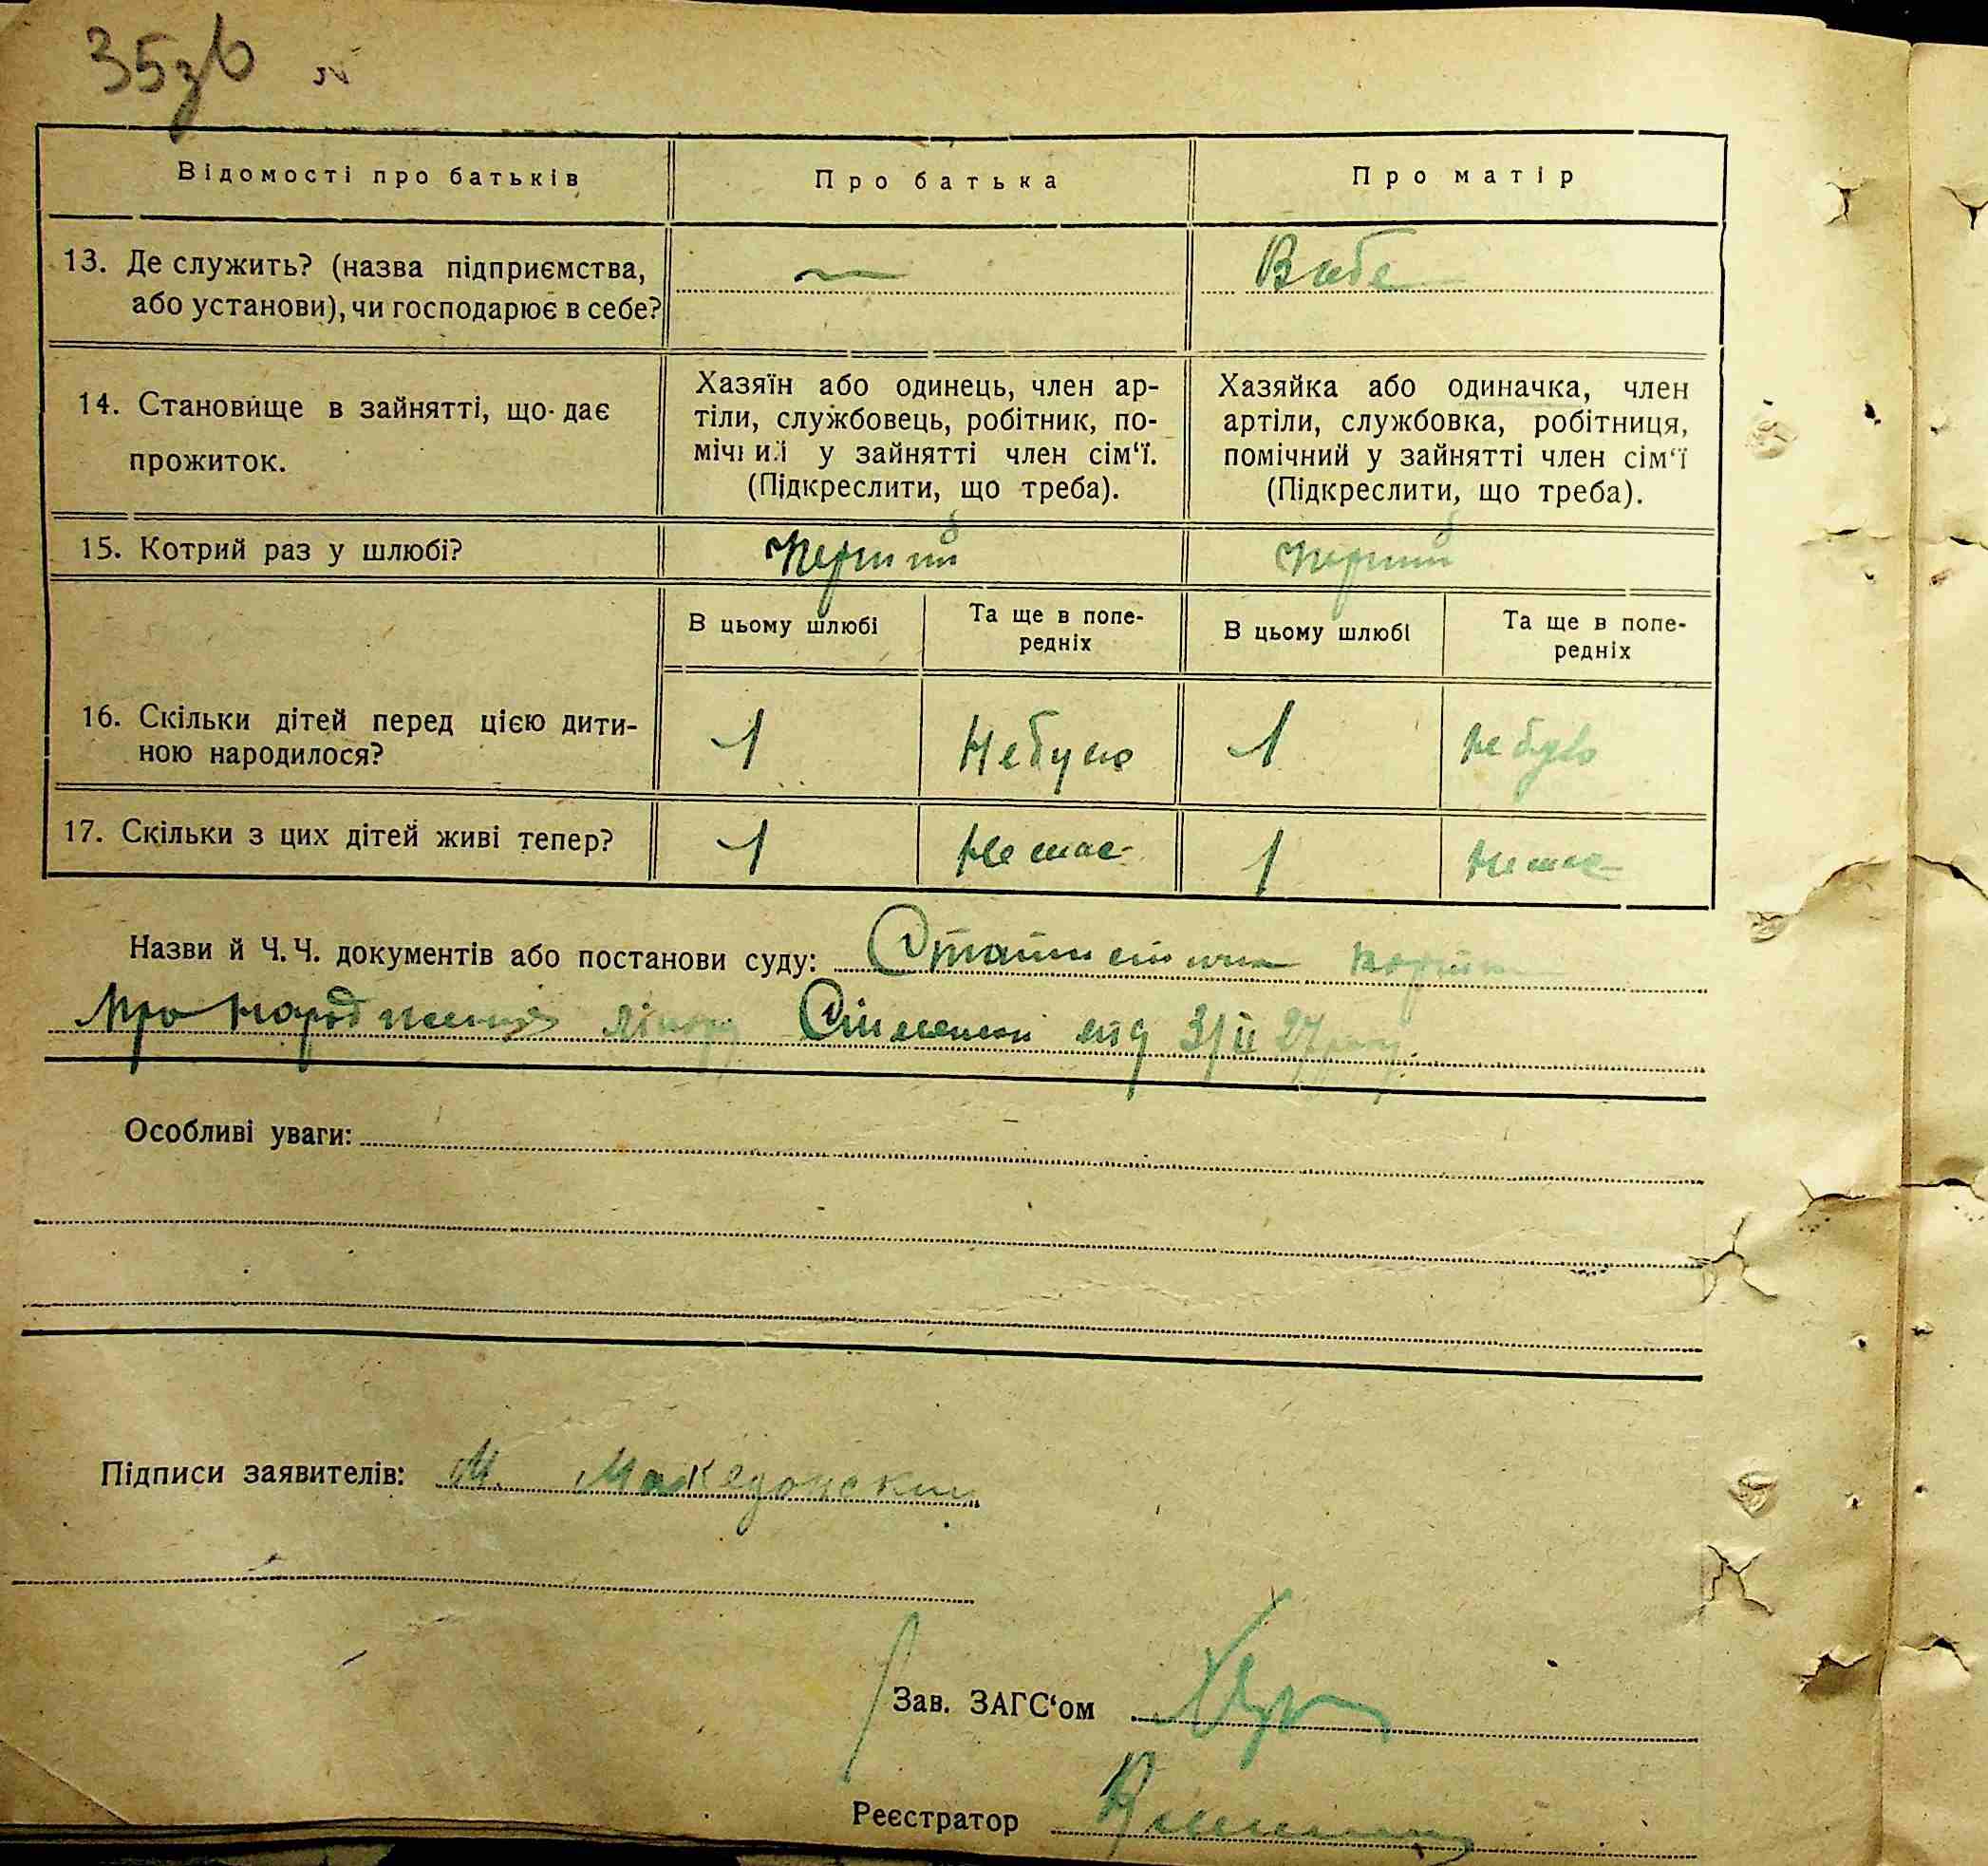 35зв
Відомості про батьків
Про батька
Про матір
13. Де служить? (назва підприємства,
або установи), чи господарює в себе?
—
14. Становище в зайнятті, що дає
прожиток.
Хазяїн або одинець, член ар-
тіли, службовець, робітник, по-
мічний у зайнятті член сім‘ї.
(Підкреслити, що треба).
Хазяйка або одиначка, член
артіли, службовка, робітниця,
помічний у зайнятті член сім‘ї
(Підкреслити, що треба).
15. Котрий раз у шлюбі?
Перший
Перший
В цьому шлюбі
Та ще в попе-
редніх
В цьому шлюбі
Та ще в попе-
редніх
16. Скільки дітей перед цією дити-
ною народилося?
1
Не було
1
Не було
17. Скільки з цих дітей живі тепер?
1
Немає
1
Немає
Назви й Ч. Ч. документів або постанови суду:
Про народження від 3/II 27 року.
Особливі уваги:
Підписи заявителів: М. Македонский
Зав. ЗАГС‘ом
Реєстратор